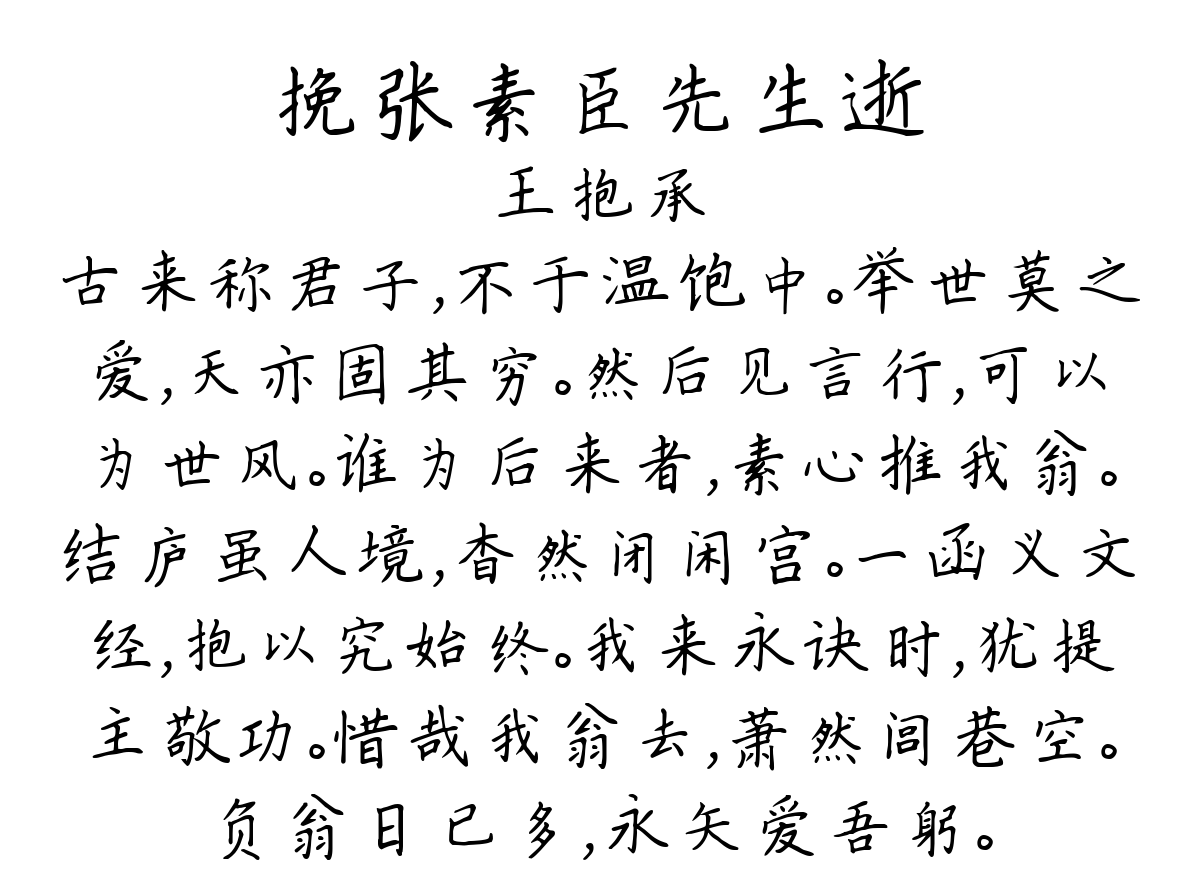 挽张素臣先生逝
王抱承
古来称君子,不于温饱中。举世莫之
爱,天亦固其穷。然后见言行,可以
为世风。谁为后来者,素心推我翁。
结庐虽人境,杳然闭闲宫。一函义文
经,抱以究始终。我来永诀时,犹提
主敬功。惜哉我翁去,萧然闾巷空。
负翁日已多,永矢爱吾躬。